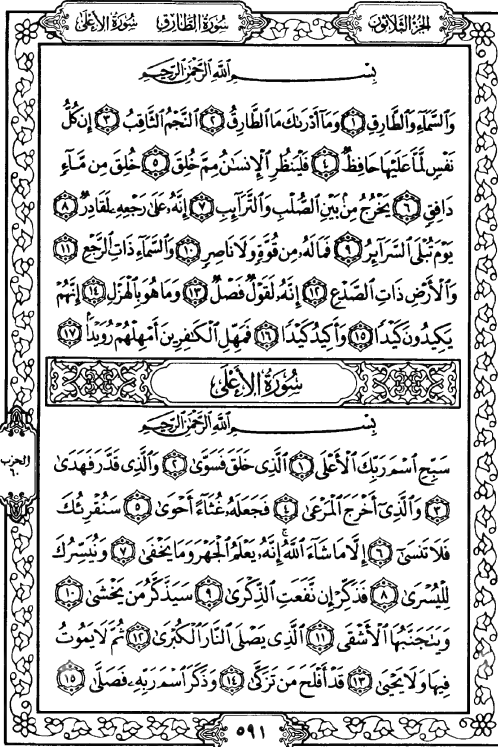 الجزء الثلاثون سورة الطارق سورة الأعلى
بِسْمِ ٱللَّهِ ٱلرَّحْمَٰنِ ٱلرَّحِيمِ
وَٱلسَّمَآءِ وَٱلطَّارِقِ ١ وَمَآ أَدْرَىٰكَ مَا ٱلطَّارِقُ ٢ ٱلنَّجْمُ ٱلثَّاقِبُ ٣ إِن كُلُّ
نَفْسٍ لَّمَّا عَلَيْهَا حَافِظٌ ٤ فَلْيَنظُرِ ٱلْإِنسَٰنُ مِمَّ خُلِقَ ٥ خُلِقَ مِن مَّآءٍ
دَافِقٍ ٦ يَخْرُجُ مِنۢ بَيْنِ ٱلصُّلْبِ وَٱلتَّرَآئِبِ ٧ إِنَّهُۥ عَلَىٰ رَجْعِهِۦ لَقَادِرٌ ٨
يَوْمَ تُبْلَى ٱلسَّرَآئِرُ ٩ فَمَا لَهُۥ مِن قُوَّةٍ وَلَا نَاصِرٍ ١٠ وَٱلسَّمَآءِ ذَاتِ ٱلرَّجْعِ ١١
وَٱلْأَرْضِ ذَاتِ ٱلصَّدْعِ ١٢ إِنَّهُۥ لَقَوْلٌ فَصْلٌ ١٣ وَمَا هُوَ بِٱلْهَزْلِ ١٤ إِنَّهُمْ
يَكِيدُونَ كَيْدًا ١٥ وَأَكِيدُ كَيْدًا ١٦ فَمَهِّلِ ٱلْكَٰفِرِينَ أَمْهِلْهُمْ رُوَيْدًۢا ١٧
سُورَةُ الأَعْلَى
بِسْمِ ٱللَّهِ ٱلرَّحْمَٰنِ ٱلرَّحِيمِ
سَبِّحِ ٱسْمَ رَبِّكَ ٱلْأَعْلَى ١ ٱلَّذِى خَلَقَ فَسَوَّىٰ ٢ وَٱلَّذِى قَدَّرَ فَهَدَىٰ
٣ وَٱلَّذِىٓ أَخْرَجَ ٱلْمَرْعَىٰ ٤ فَجَعَلَهُۥ غُثَآءً أَحْوَىٰ ٥ سَنُقْرِئُكَ
الحزب ٦٠
فَلَا تَنسَىٰٓ ٦ إِلَّا مَا شَآءَ ٱللَّهُ ۚ إِنَّهُۥ يَعْلَمُ ٱلْجَهْرَ وَمَا يَخْفَىٰ ٧ وَنُيَسِّرُكَ
لِلْيُسْرَىٰ ٨ فَذَكِّرْ إِن نَّفَعَتِ ٱلذِّكْرَىٰ ٩ سَيَذَّكَّرُ مَن يَخْشَىٰ ١٠
وَيَتَجَنَّبُهَا ٱلْأَشْقَى ١١ ٱلَّذِى يَصْلَى ٱلنَّارَ ٱلْكُبْرَىٰ ١٢ ثُمَّ لَا يَمُوتُ
فِيهَا وَلَا يَحْيَىٰ ١٣ قَدْ أَفْلَحَ مَن تَزَكَّىٰ ١٤ وَذَكَرَ ٱسْمَ رَبِّهِۦ فَصَلَّىٰ ١٥
٥٩١